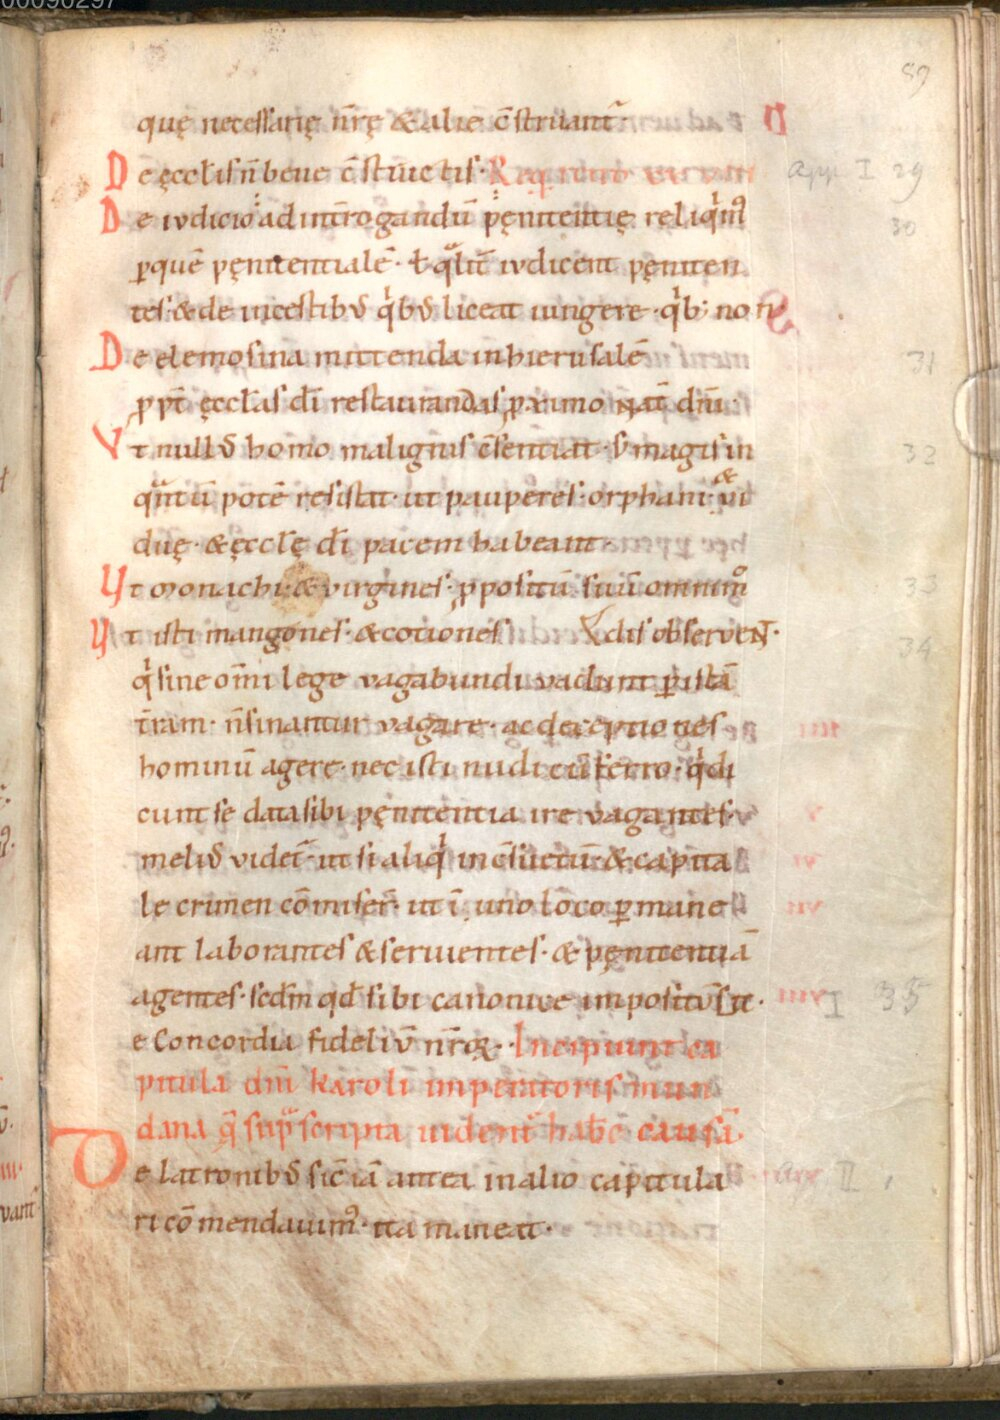 00090297
89
quę necessarię nr̄ę & alie c̄struant᷑·
De ęccl̄is n̄ bene c̄structis· Require
app I 29
De ivdicio ad int̄rogandū pęnitentię reliqͥm᷒
30
ꝑ quē pęnitentialē· ł qͣlit̄ ivdicent pęniten
tes· & de incestibꝰ qͥbꝰ liceat iungere· qͥb; non·
De elemosina mittenda in hierusalē
31
ꝓpt̄ ęccl̄as dī restaurandas ꝓximo nat̄ dn̄i·
Vt nullꝰ homo malignis c̄sentiat· s; magis in
32
qͣntū potē resistat· ut pauperes· orphani· & vi
duę· & ęccl̄ę dī pacem habeant·
Vt monachi· & virgines· ꝓpositū suū omnim᷒o
33
Vt isti mangones· & cotiones dis observent·
34
qͥ sine om̄i lege vagabundi vadunt ꝑ istā
t̄ram· n̄ sinantur vagare· ac deceptiones
hominū agere· nec isti nudi cū ferro· qͥ di
cunt se data sibi pęnitentia ire vagantes·
meliꝰ videt᷑· ut si aliqͥ inc̄suetū· & capita
le crimen cōmiser̄· ut ī uno loco ꝑmane
ant laborantes & seruientes· & pęnitentiā
agentes· scdm̄ qd̄ sibi canonice impositū sit·
I 35
e Concordia fideliū nr̄oꝝ· Incipiunt ca
pitula dn̄i Karoli imperatoris mun
dana q̄ sup͛scripta uident᷑ habē causā·
De latronibꝰ sic̄ iā antea in alio capitula
app II 1
ri cōmendauim᷒· ita maneat·